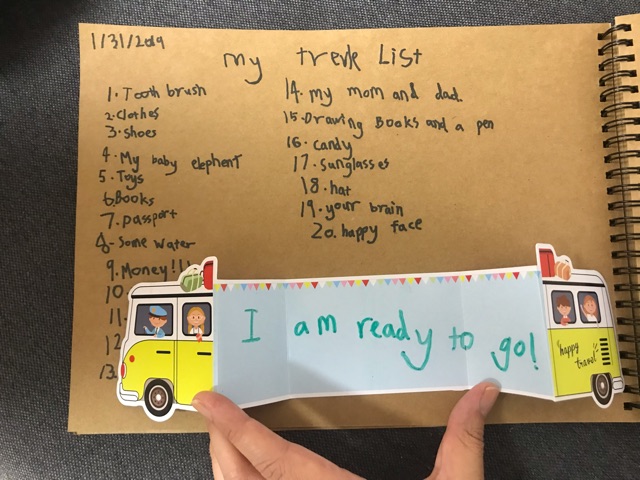 1/31/2019
my trevle LIST
1. Tooth brush
2. Clothes
3. Shoes
4. My baby elephent
5. Toys
6. Books
7. passport
8. Some water
9. Money!!!
10
11
12
13
14. my mom and dad.
15. Drawing Books and a pen
16. candy
17. sunglasses
18. hat
19. your brain
20. happy face
I am ready to go!
happy
travel